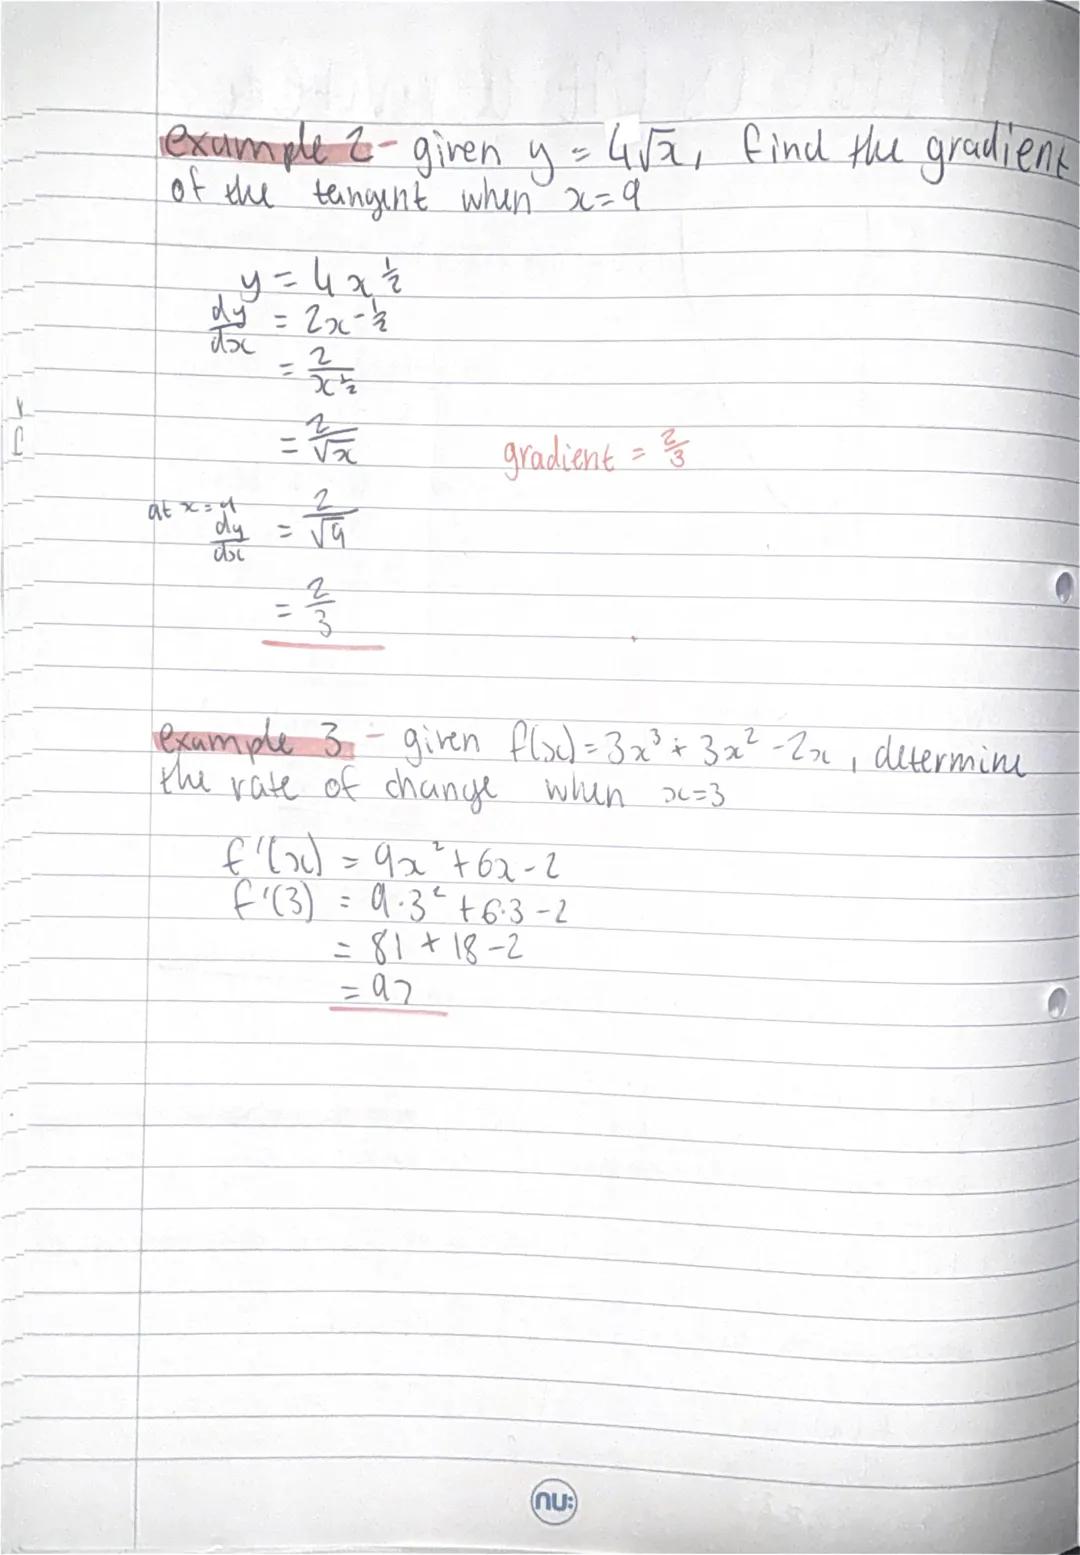 example 2 - given y = 4√x, find the gradient
of the tangent when x=9
y = 4x^½
dy/dx = 2x^-½
= 2/x^½
= 2/√x
gradient = 2/3
at x=9
dy/dx = 2/√9
= 2/3
example 3 - given f(x) = 3x³ + 3x² - 2x, determine
the rate of change when x=3
f'(x) = 9x² + 6x - 2
f'(3) = 9·3² + 6·3 - 2
= 81 + 18 - 2
= 97
nu: